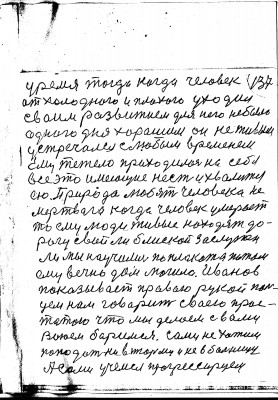 уремя тогда когда человек 137
от холодного и плохого уходил
своим развитием для него небыло
одного дня хорошим он не
устречался с любым временем
ему тепело приходилоя на себя
все это имеющие нест и хвалит
ею. Природа любят человека не
мертвага когда человек умерает
то ему люди живые находят до-
рогу свои ли близкай заслужил
ли мы научили поплакат а потом
ему вечно дом могилу. Иванов
показывает праваю рукой пол-
цем нам говорит своего прос-
тотою что мы делаем с вами
Воюем боримся. Сами не хотим
попадат ни в тюрму и не в болницу
А сами учемся прогрессируем